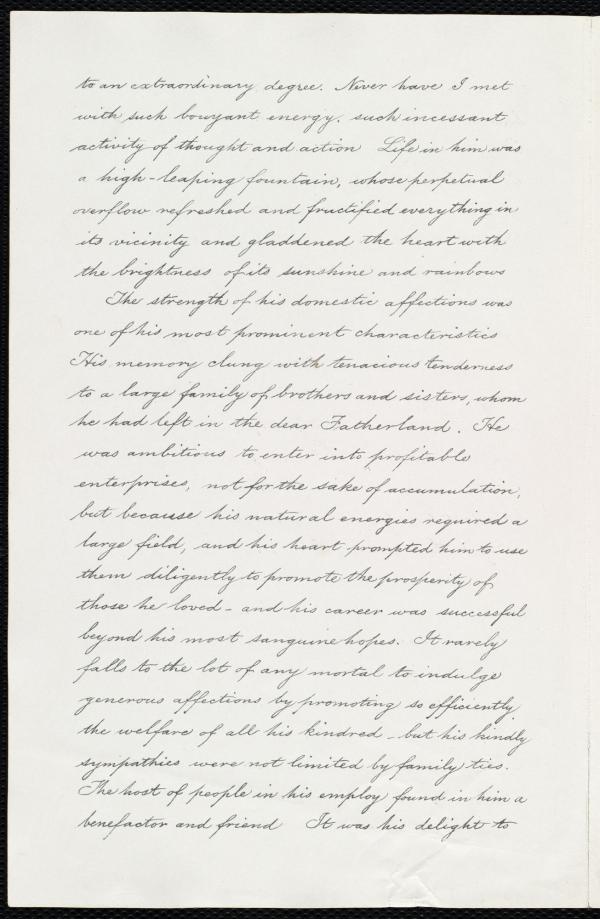 to an extraordinary degree. Never have I met
with such bouyant energy. such incessant
activity of thought and action Life in him was
a high-leaping fountain, whose perpetual
overflow refreshed and fructified everything in
its vicinity and gladdened the heart with
the brightness of its sunshine and rainbows
The strength of his domestic affections was
one of his most prominent characteristics
His memory clung with tenacious tenderness
to a large family of brothers and sisters, whom
he had left in the dear Fatherland. He
was ambitious to enter into profitable
enterprises, not for the sake of accumulation,
but because his natural energies required a
large field, and his heart prompted him to use
them diligently to promote the prosperity of
those he loved - and his career was successful
beyond his most sanguine hopes. It rarely
falls to the lot of any mortal to indulge
generous affections by promoting so efficiently
the welfare of all his kindred - but his kindly
sympathies were not limited by family ties.
The host of people in his employ found in him a
benefactor and friend It was his delight to